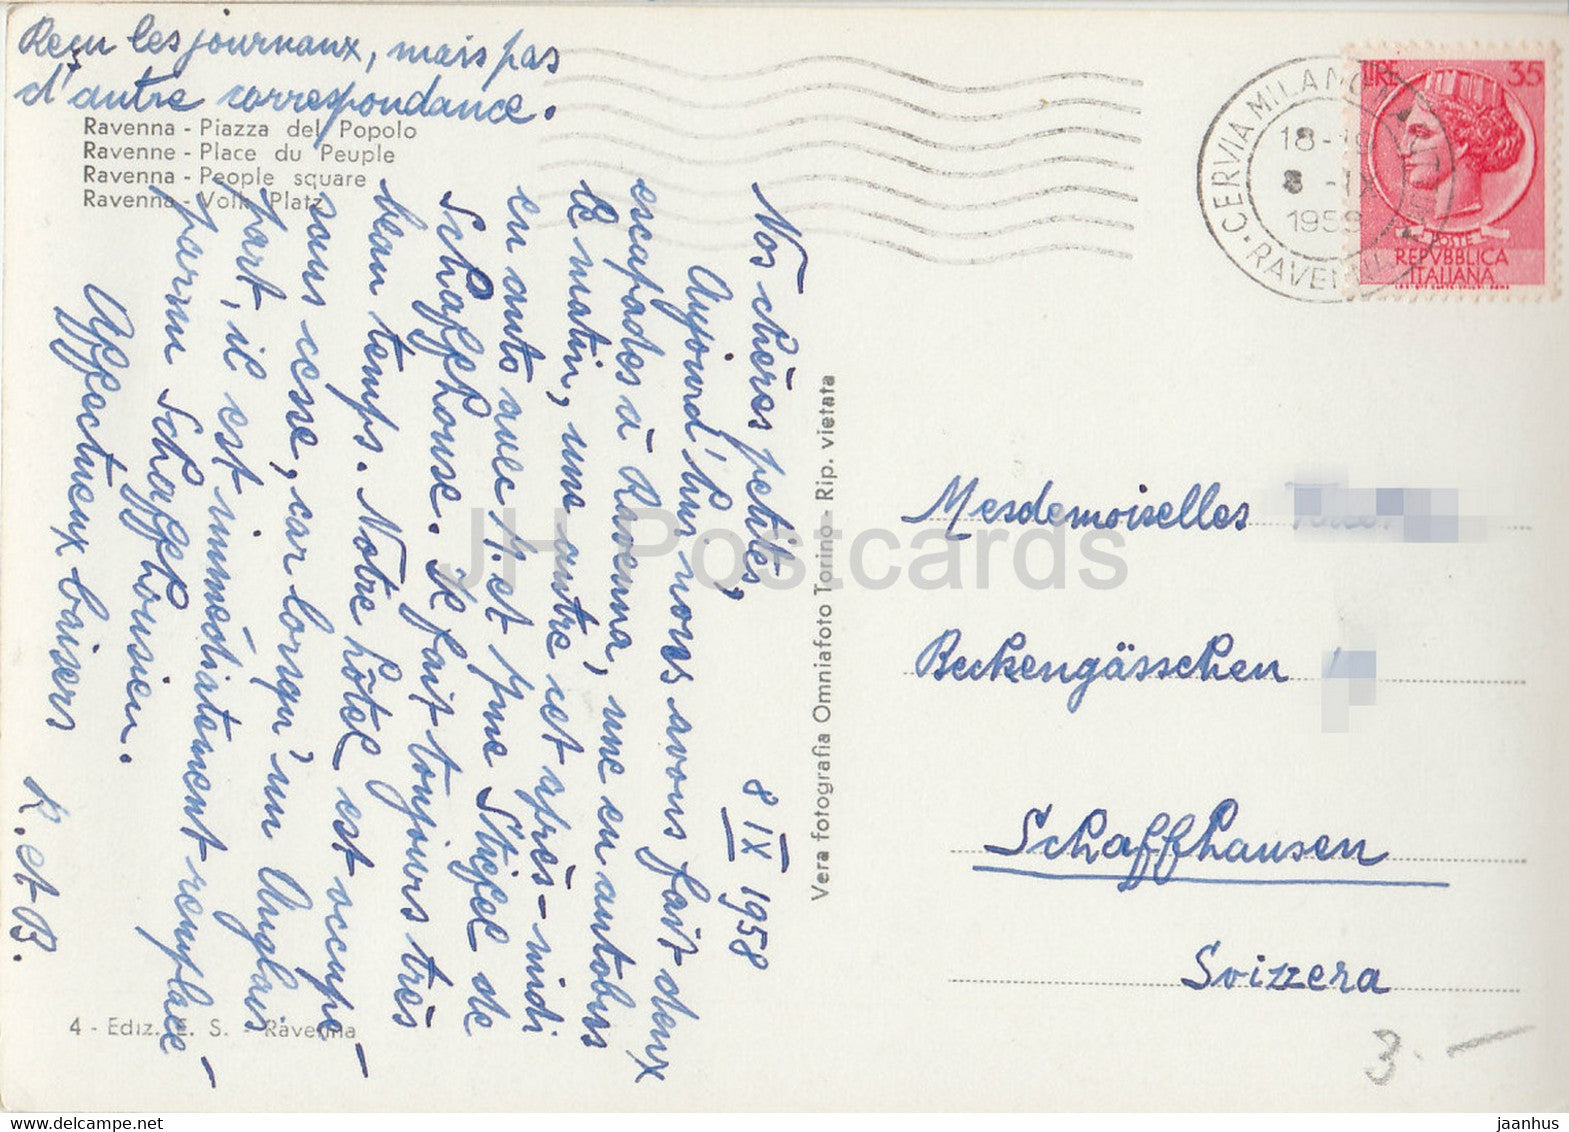 Reçu les journaux, mais pas
d'autre correspondance.
Ravenna - Piazza del Popolo
Ravenne - Place du Peuple
Ravenna - People square
Ravenna - Volk Platz
Nos chères petites,
8 IX 1958
Aujourd'hui nous avons fait deux
escapades à Ravenna, une en autobus
le matin, une autre cet après-midi
en auto avec M. et Mme Stiefel de
Schaffhouse. Il fait toujours très
beau temps. Notre hôtel est occupé
sans cesse, car lorsqu'un Anglais
part, il est immédiatement remplacé
par un Schaffhousien.
Affectueux baisers
R. et B.
4 - Ediz. E. S. - Ravenna
Vera fotografia Omniafoto Torino - Rip. vietata
CERVIA MILANO MARITTIMA
18-19
8 -IX
1958
RAVENNA
LIRE 35
POSTE
REPVBBLICA
ITALIANA
Mesdemoiselles
Beckengässchen
Schaffhausen
Svizzera
3.-
JH Postcards
jaanhus